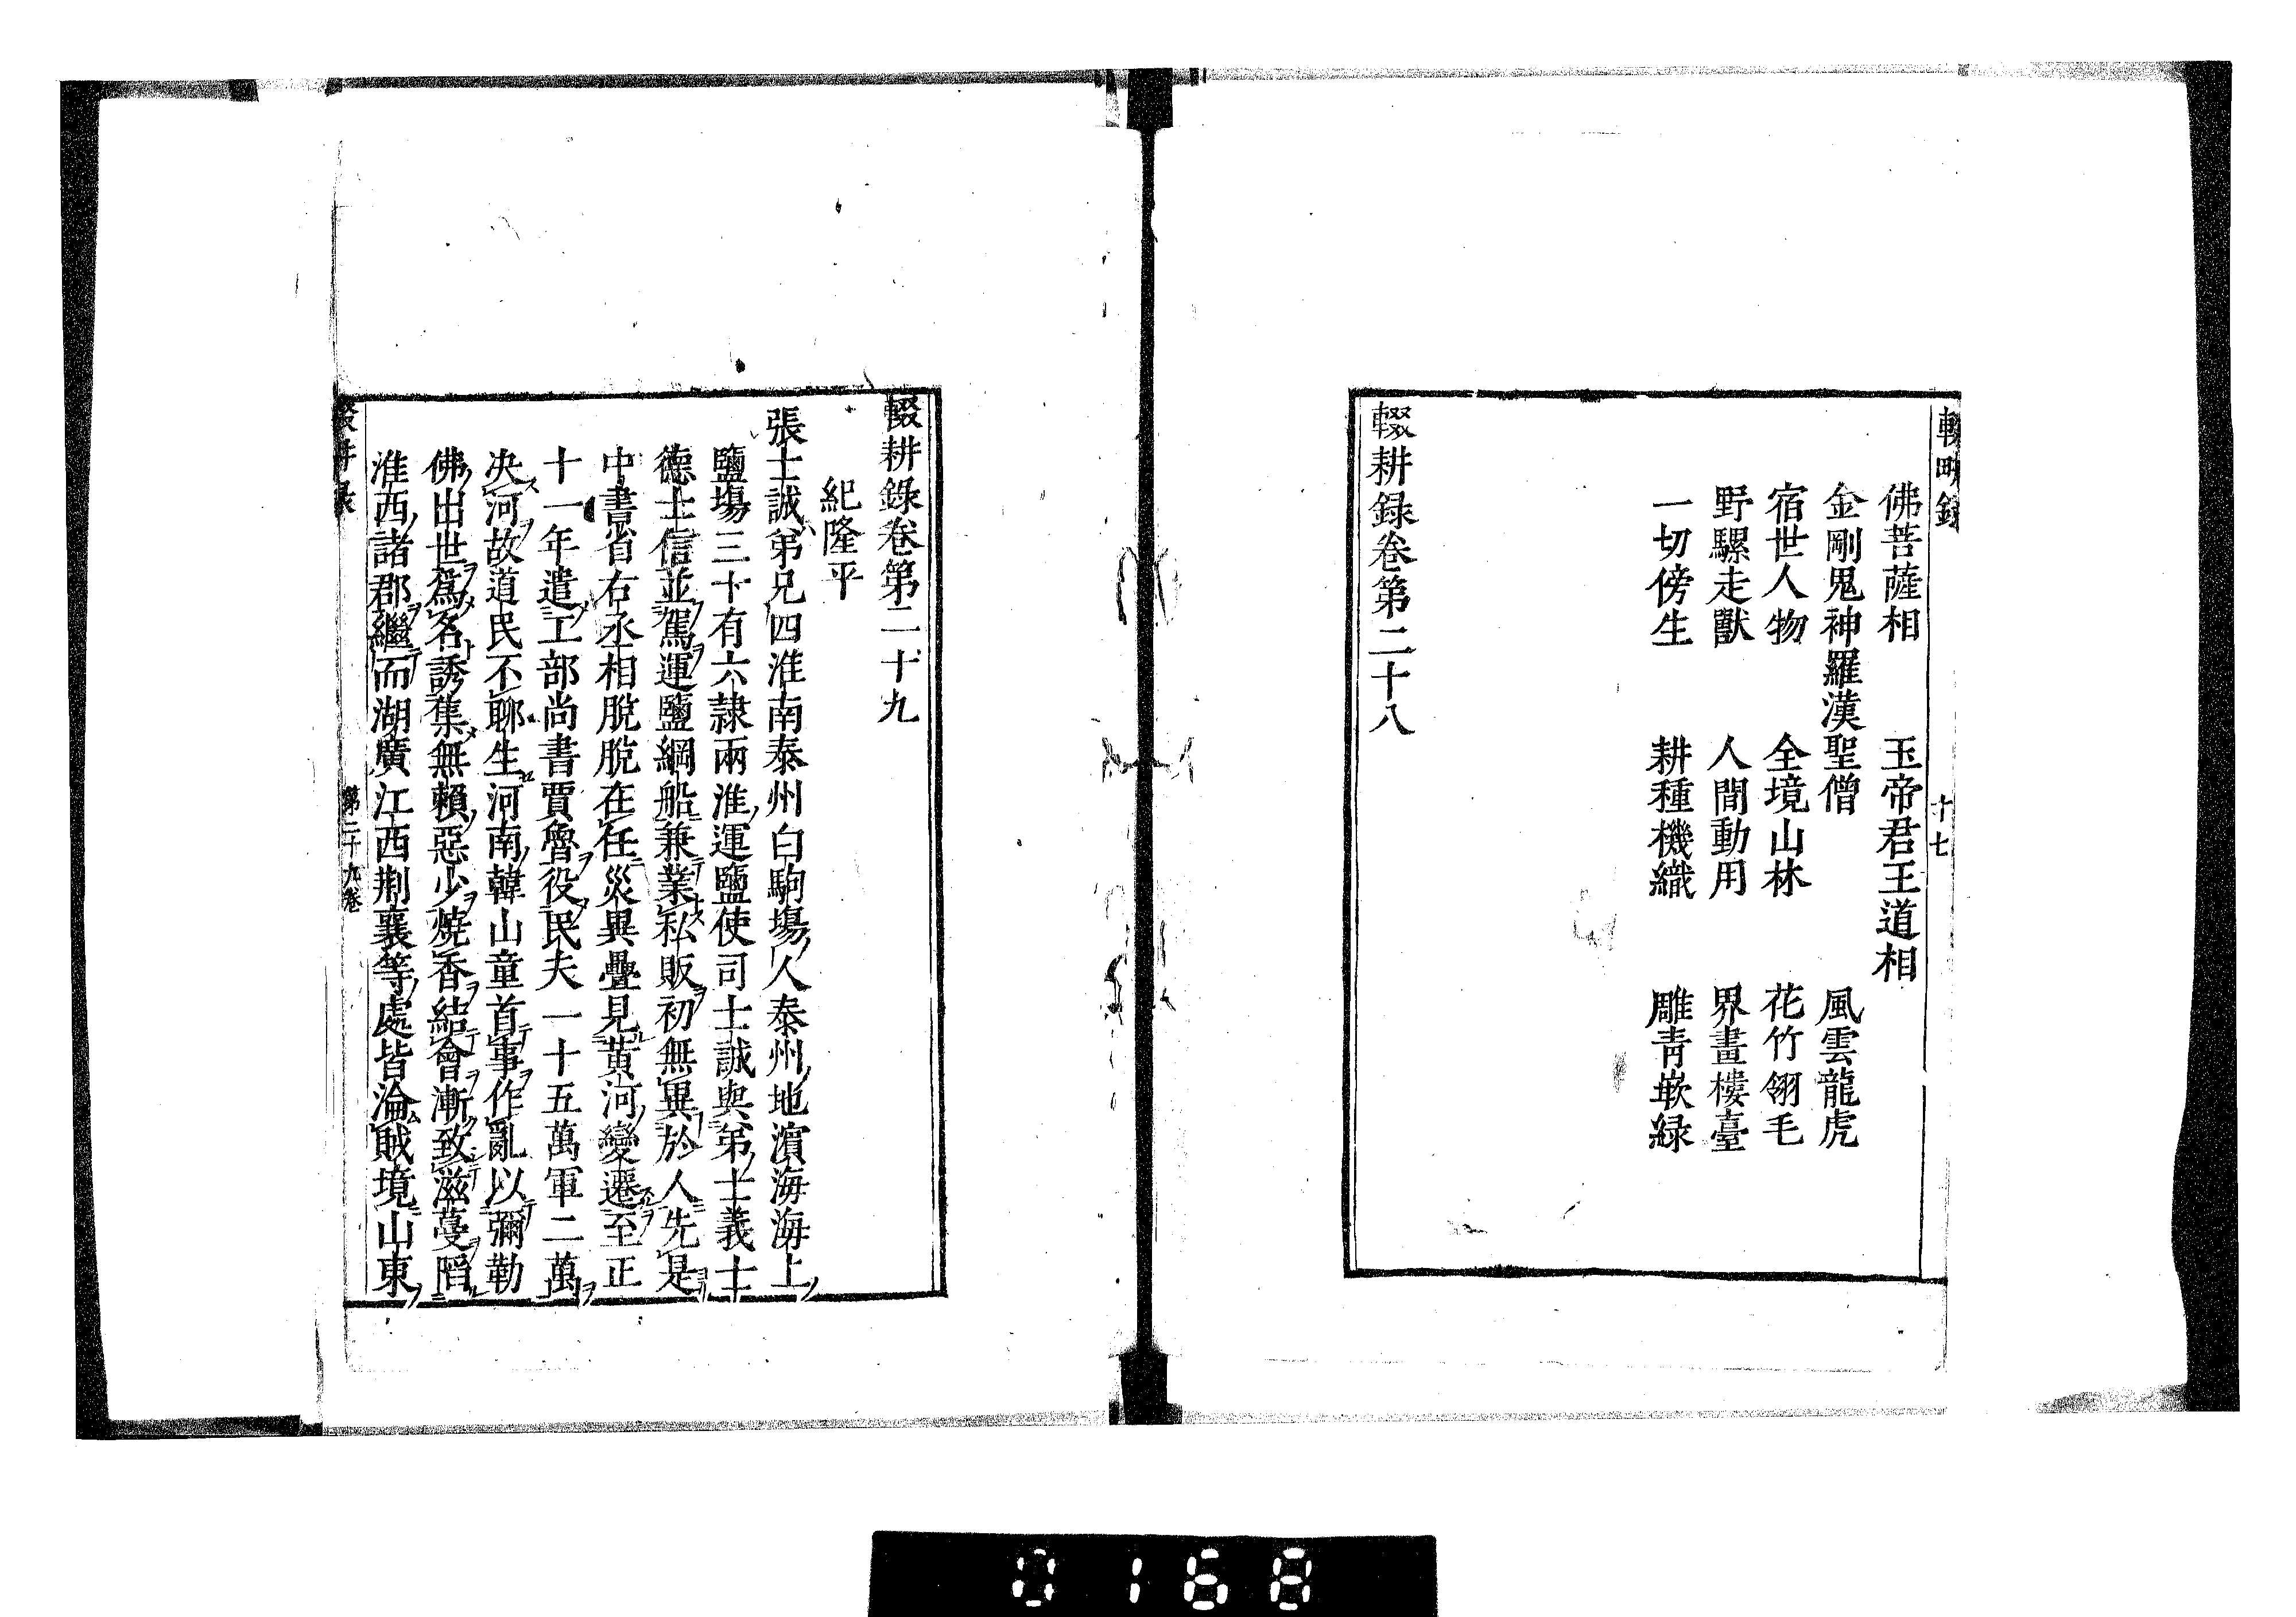 輟畊録
十七
佛菩薩相　玉帝君王道相
金剛鬼神羅漢聖僧　風雲龍虎
宿世人物　全境山林　花竹翎毛
野騾走獸　人間動用　界畫樓臺
一切傍生　耕種機織　雕青嵌緑
輟耕録卷第二十八
輟耕錄卷第二十九
紀隆平
張士誠弟兄四淮南泰州白駒場人泰州地濵海海上
鹽塲三十有六隷兩淮運鹽使司士誠與弟士義士
德士信並駕運鹽綱船兼業私販初無異於人先是
中書省右丞相脫脫在任災異疊見黄河變遷至正
十一年遣工部尚書賈魯役民夫一十五萬軍二萬
决河故道民不聊生河南韓山童首事作亂以彌勒
佛出世爲名誘集無賴惡少燒香結會漸致滋蔓陷
淮西諸郡繼而湖廣江西荆襄等處皆淪賊境山東
輟耕录
第二十九卷
0168